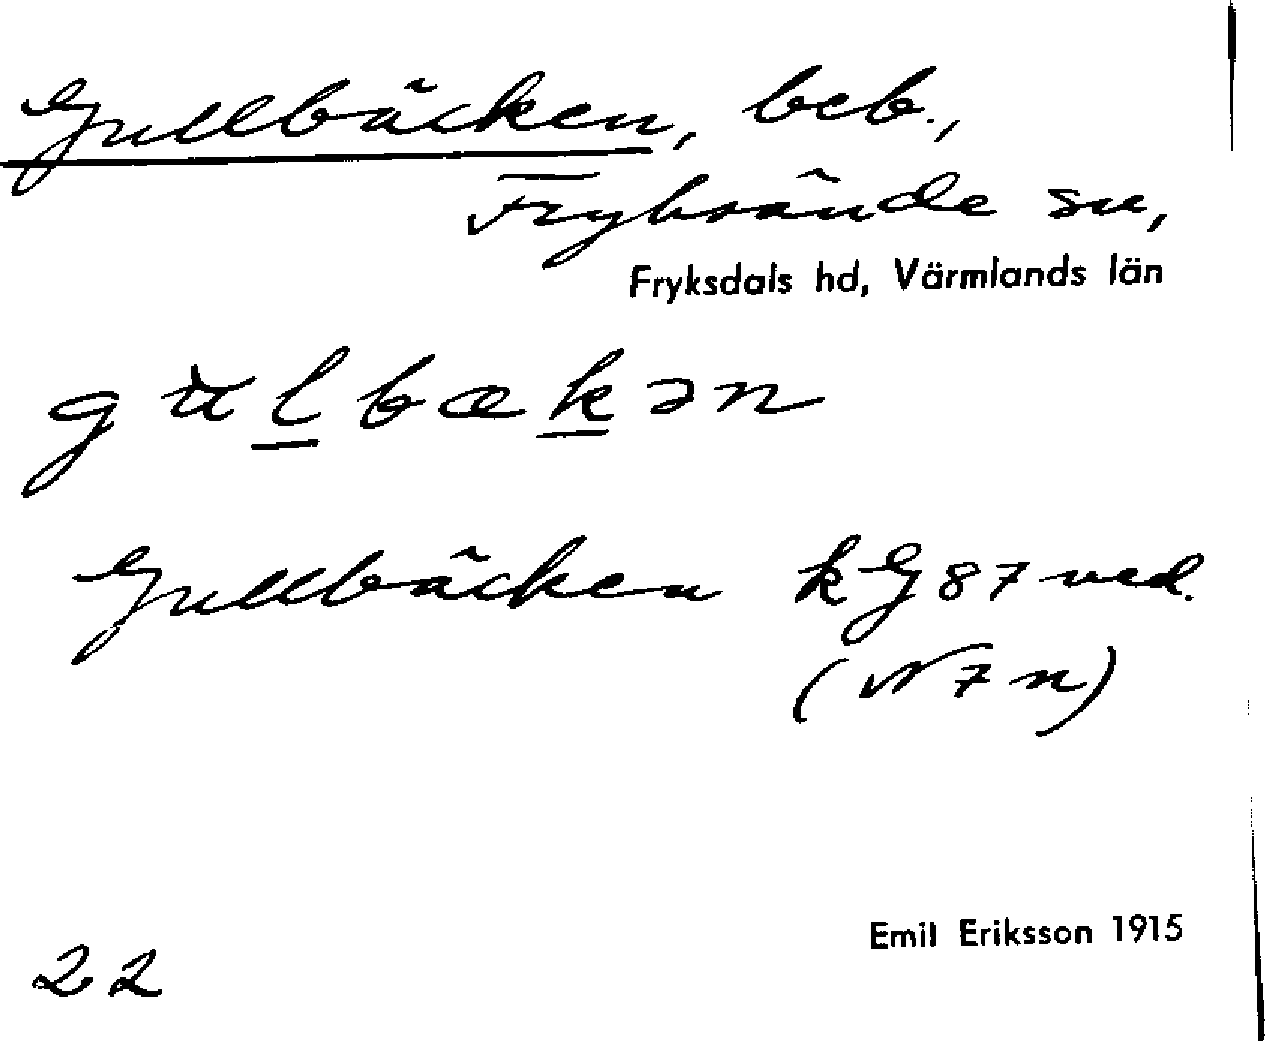 Gullbäcken, beb.,
Frykände sn,
Fryksdals hd, Värmlands län
gulbækən
Gullbäcken kG 87 ned.
(N 7 n)
Emil Eriksson 1915
22